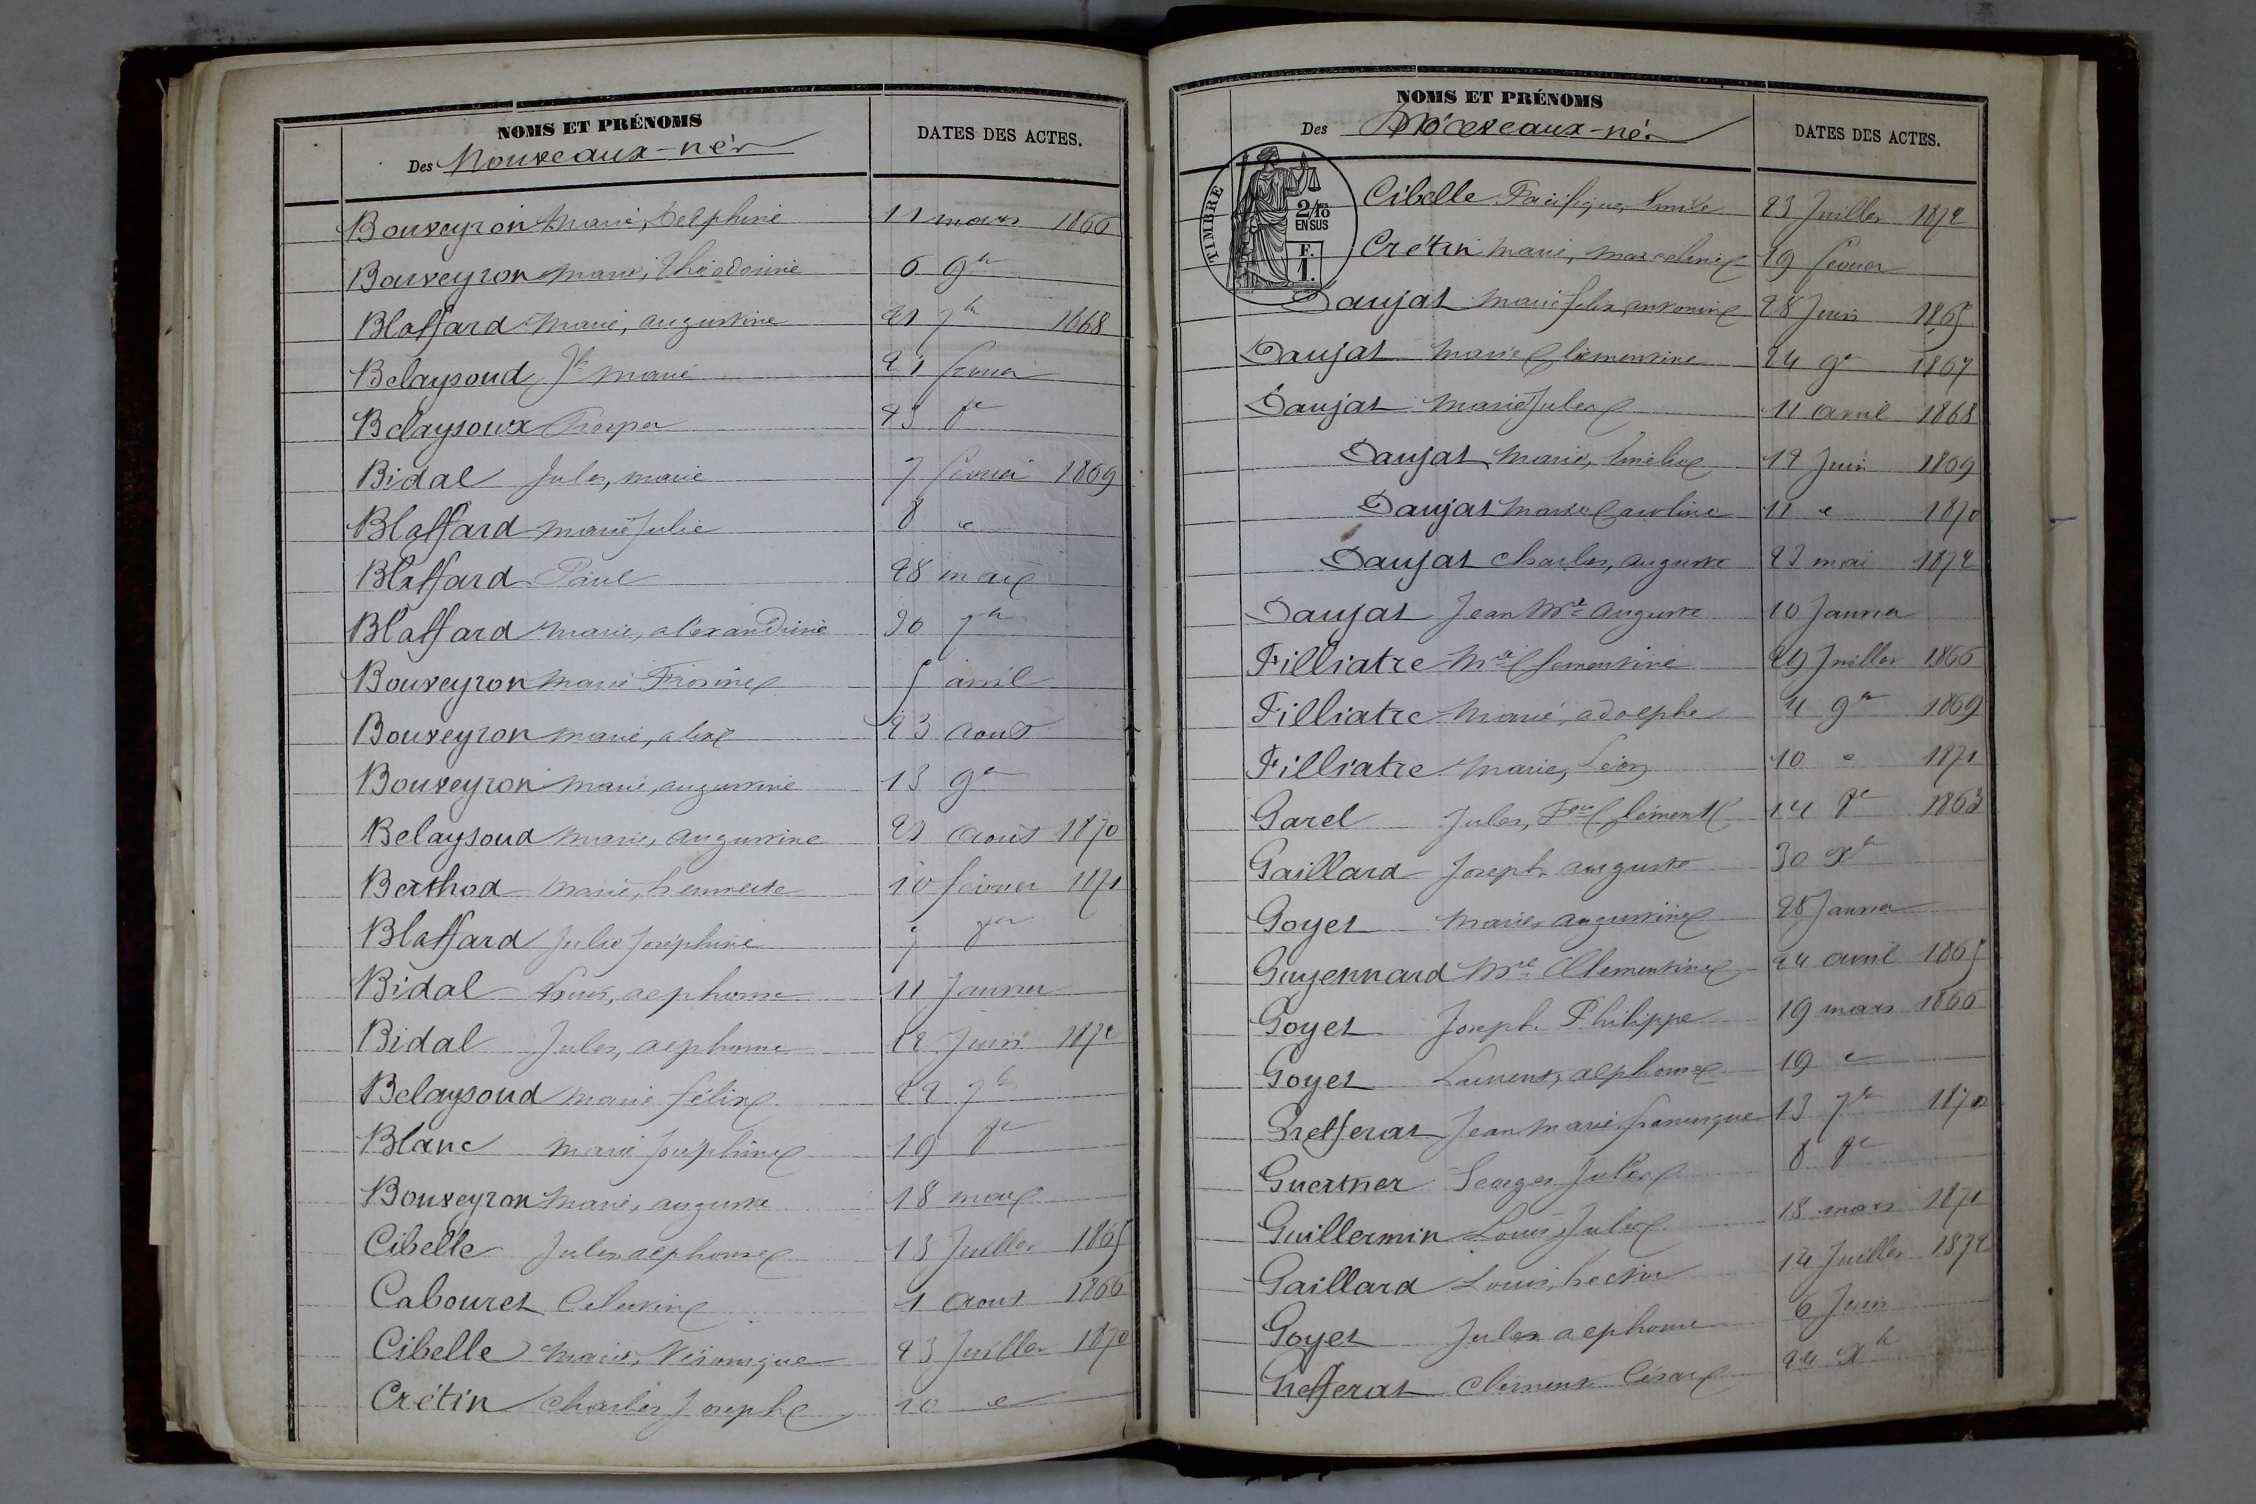 NOMS ET PRÉNOMS
Des Nouveaux-nés
DATES DES ACTES.
Bouveyron Marie, Delphine 11 mars 1866
Bouveyron Marie, Théodorine 6 9bre
Blaffard Marie, augustine 21 7bre 1868
Belaysoud Jh marie 21 février
Belaysoux Prosper 23 8e
Bidal Jules, marie 7 février 1869
Blaffard marie Julie 8 "
Blaffard Paul 28 mars
Blaffard marie, alexandrine 30 7bre
Bouveyron marie Frosine 5 avril
Bouveyron marie, alix 23 aout
Bouveyron marie, augustine 13 9bre
Belaysoud marie, augustine 21 aout 1870
Berthod marie, henriette 10 février 1871
Blaffard Julie Joséphine 7 8bre
Bidal Louis, alphonse 11 Janvier
Bidal Jules, alphonse 12 Juin 1872
Belaysoud marie félix 22 7bre
Blanc marie Joséphine 19 8e
Bouveyron Marie, auguste 18 mars
Cibelle Jules alphonse 13 Juillet 1865
Cabouret Celestine 1 Aout 1866
Cibelle marie, Véronique 23 Juillet 1870
Crétin Charles Joseph 10 "
NOMS ET PRÉNOMS
Des Nouveaux-nés
DATES DES ACTES.
TIMBRE
2/10
EN SUS
F.
1.
Cibelle Pacifique, Emile 23 Juillet 1872
Crétin marie, marceline 29 février
Daujat marie felix, antonin 28 Juin 1865
Daujat marie Clémentine 24 9e 1867
Daujat marie Jules 11 avril 1868
Daujat Marie, Emélie 12 Juin 1869
Daujat marie Caroline 11 " 1870
Daujat Charles, auguste 23 mai 1872
Daujat Jean Me auguste 10 Janvier
Filliatre Mie Clementine 29 Juillet 1866
Filliatre Marie, adolphe 4 9bre 1869
Filliatre Marie, Léon 10 " 1871
Garel Jules, Fois Clément 14 8e 1863
Gaillard Joseph auguste 30 Xbre
Goyet Marie, augustine 28 Janvier
Guyennard Mie Clementine 24 avril 1865
Goyet Joseph Philippe 19 mars 1866
Goyet Laurent, alphonse 19 "
Grefferas Jean Marie, 13 7bre 1870
Guertner Georges Jules 8 8e
Guillermin Louis, Jules 18 mars 1871
Gaillard Louis, hector 14 Juillet 1872
Goyet Jules alphonse 6 Juin
Grefferas Clément César 24 Xbre